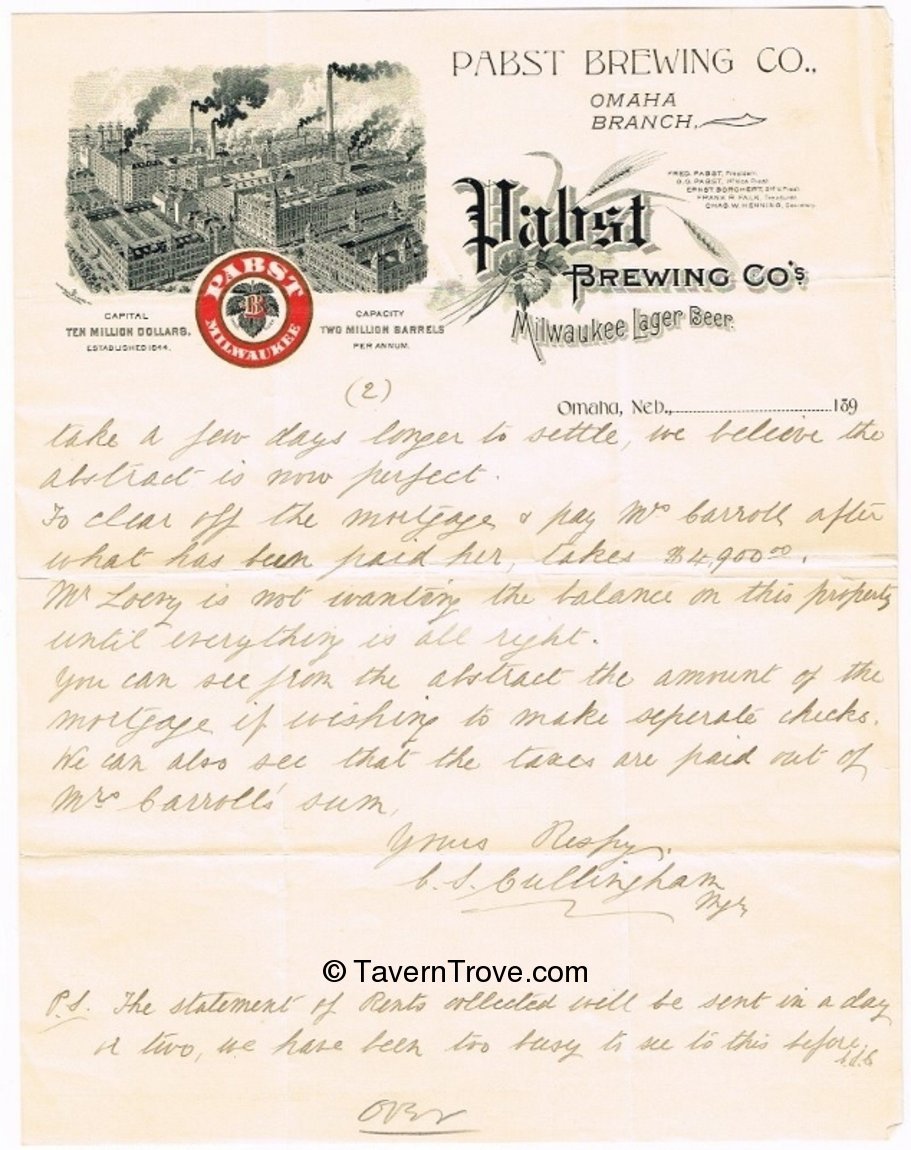 PABST BREWING CO.,
OMAHA
BRANCH,
FRED. PABST, President.
G.G. PABST, 1st Vice Prest.
ERNST BORCHERT, 2nd V. Prest.
FRANK R. FALK, Treasurer.
CHAS. W. HENNING, Secretary.
Pabst
BREWING CO'S
Milwaukee Lager Beer.
PABST
MILWAUKEE
CAPITAL
TEN MILLION DOLLARS.
ESTABLISHED 1844.
CAPACITY
TWO MILLION BARRELS
PER ANNUM.
(2)
Omaha, Neb., 189
take a few days longer to settle, we believe the
abstract is now perfect.
To clear off the mortgage & pay Mrs Carroll after
what has been paid her, takes $4,900.00.
Mr Loevy is not wanting the balance on this property
until everything is all right.
You can see from the abstract the amount of the
mortgage if wishing to make seperate checks.
We can also see that the taxes are paid out of
Mrs Carroll's sum,
Yours Respy.
C. S. Cullingham
Mgr
© TavernTrove.com
P.S. The statement of Rents collected will be sent in a day
or two, we have been too busy to see to this before.
Over